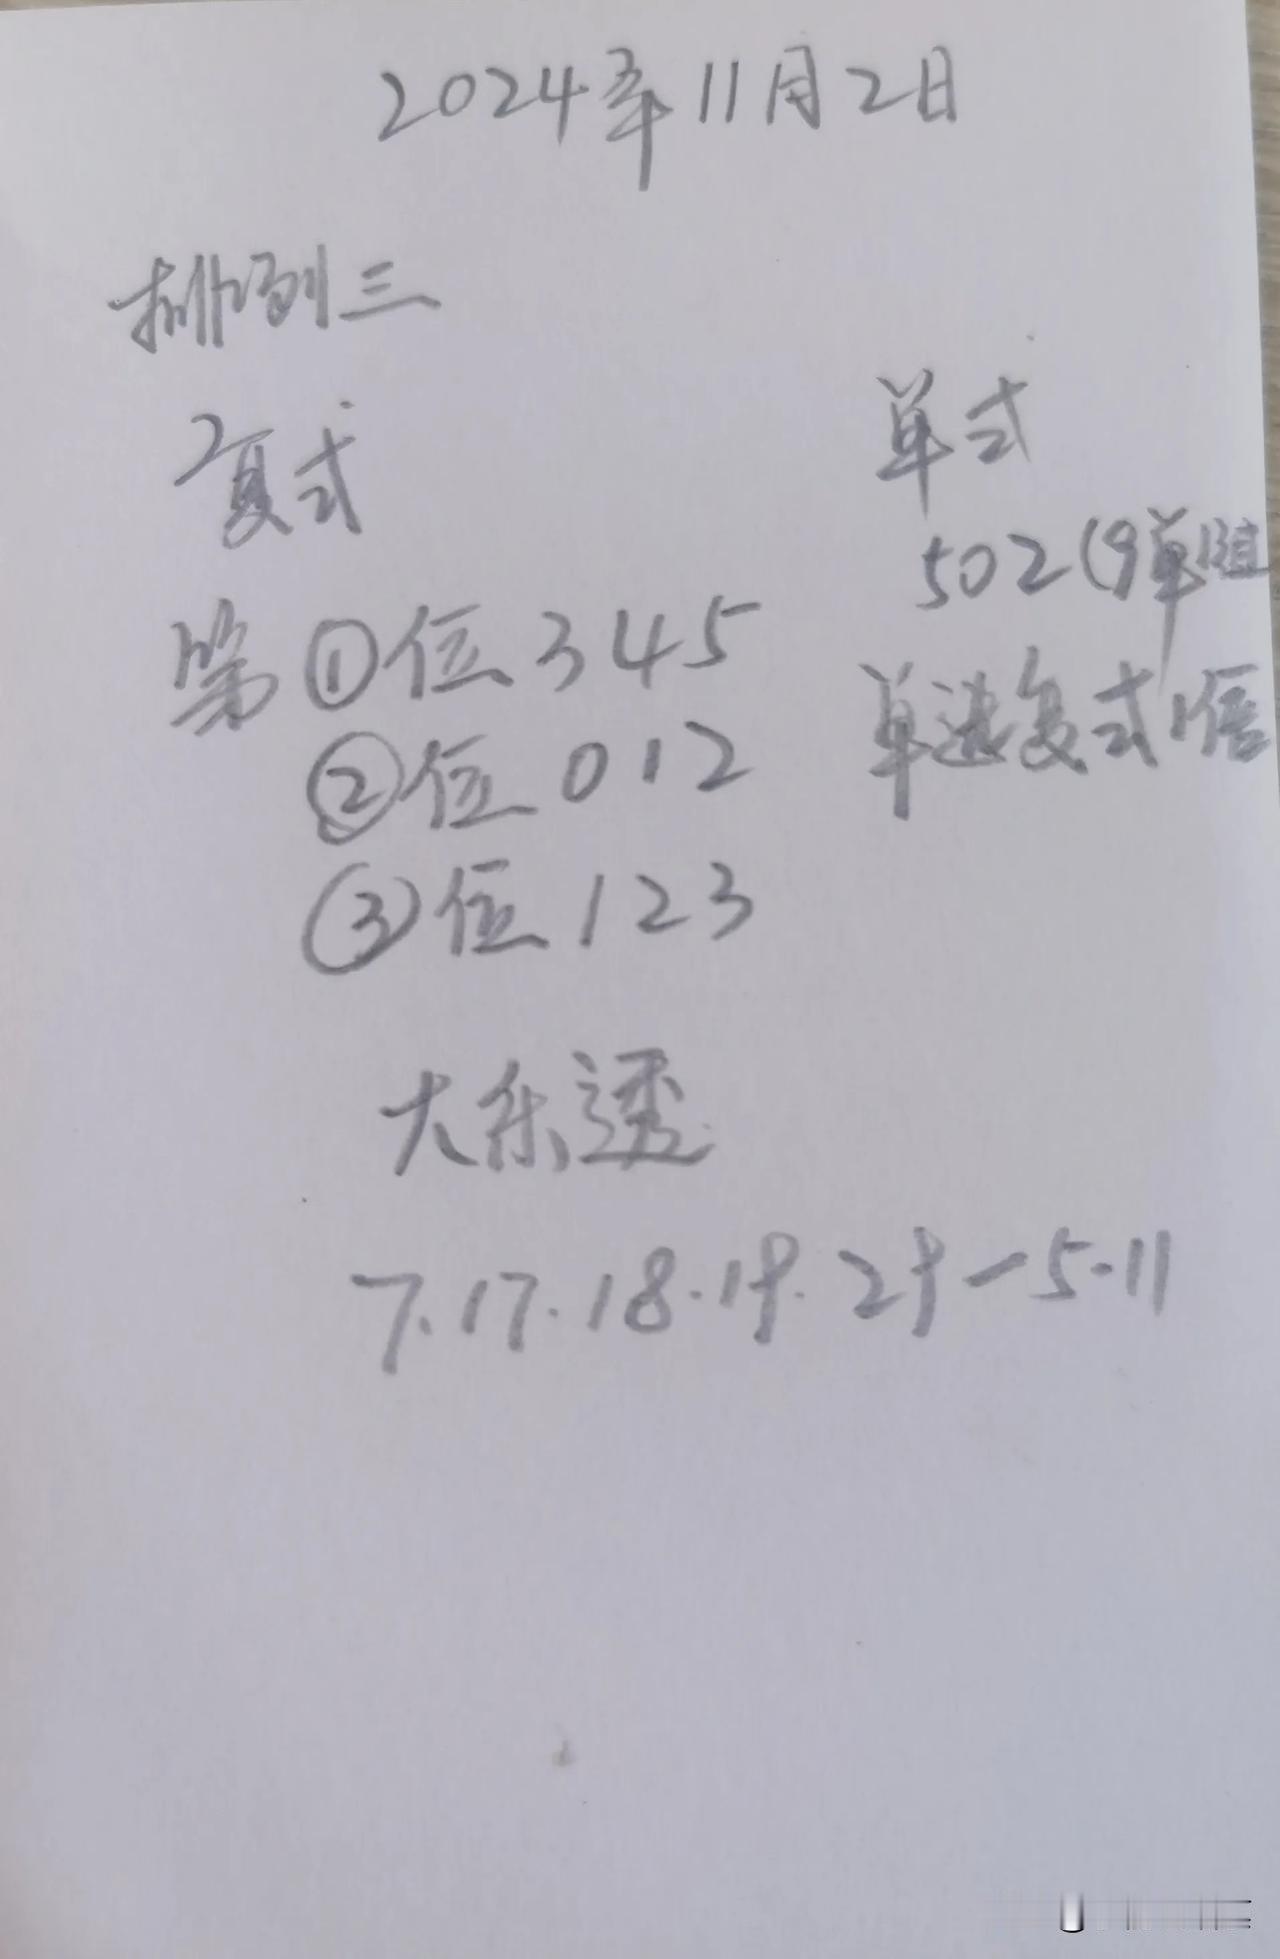 2024年11月2日
排列三
复式
单式
502(9单
第①位345
单选复式1倍
②位012
③位123
大乐透
7.17.18.19.29-5.11